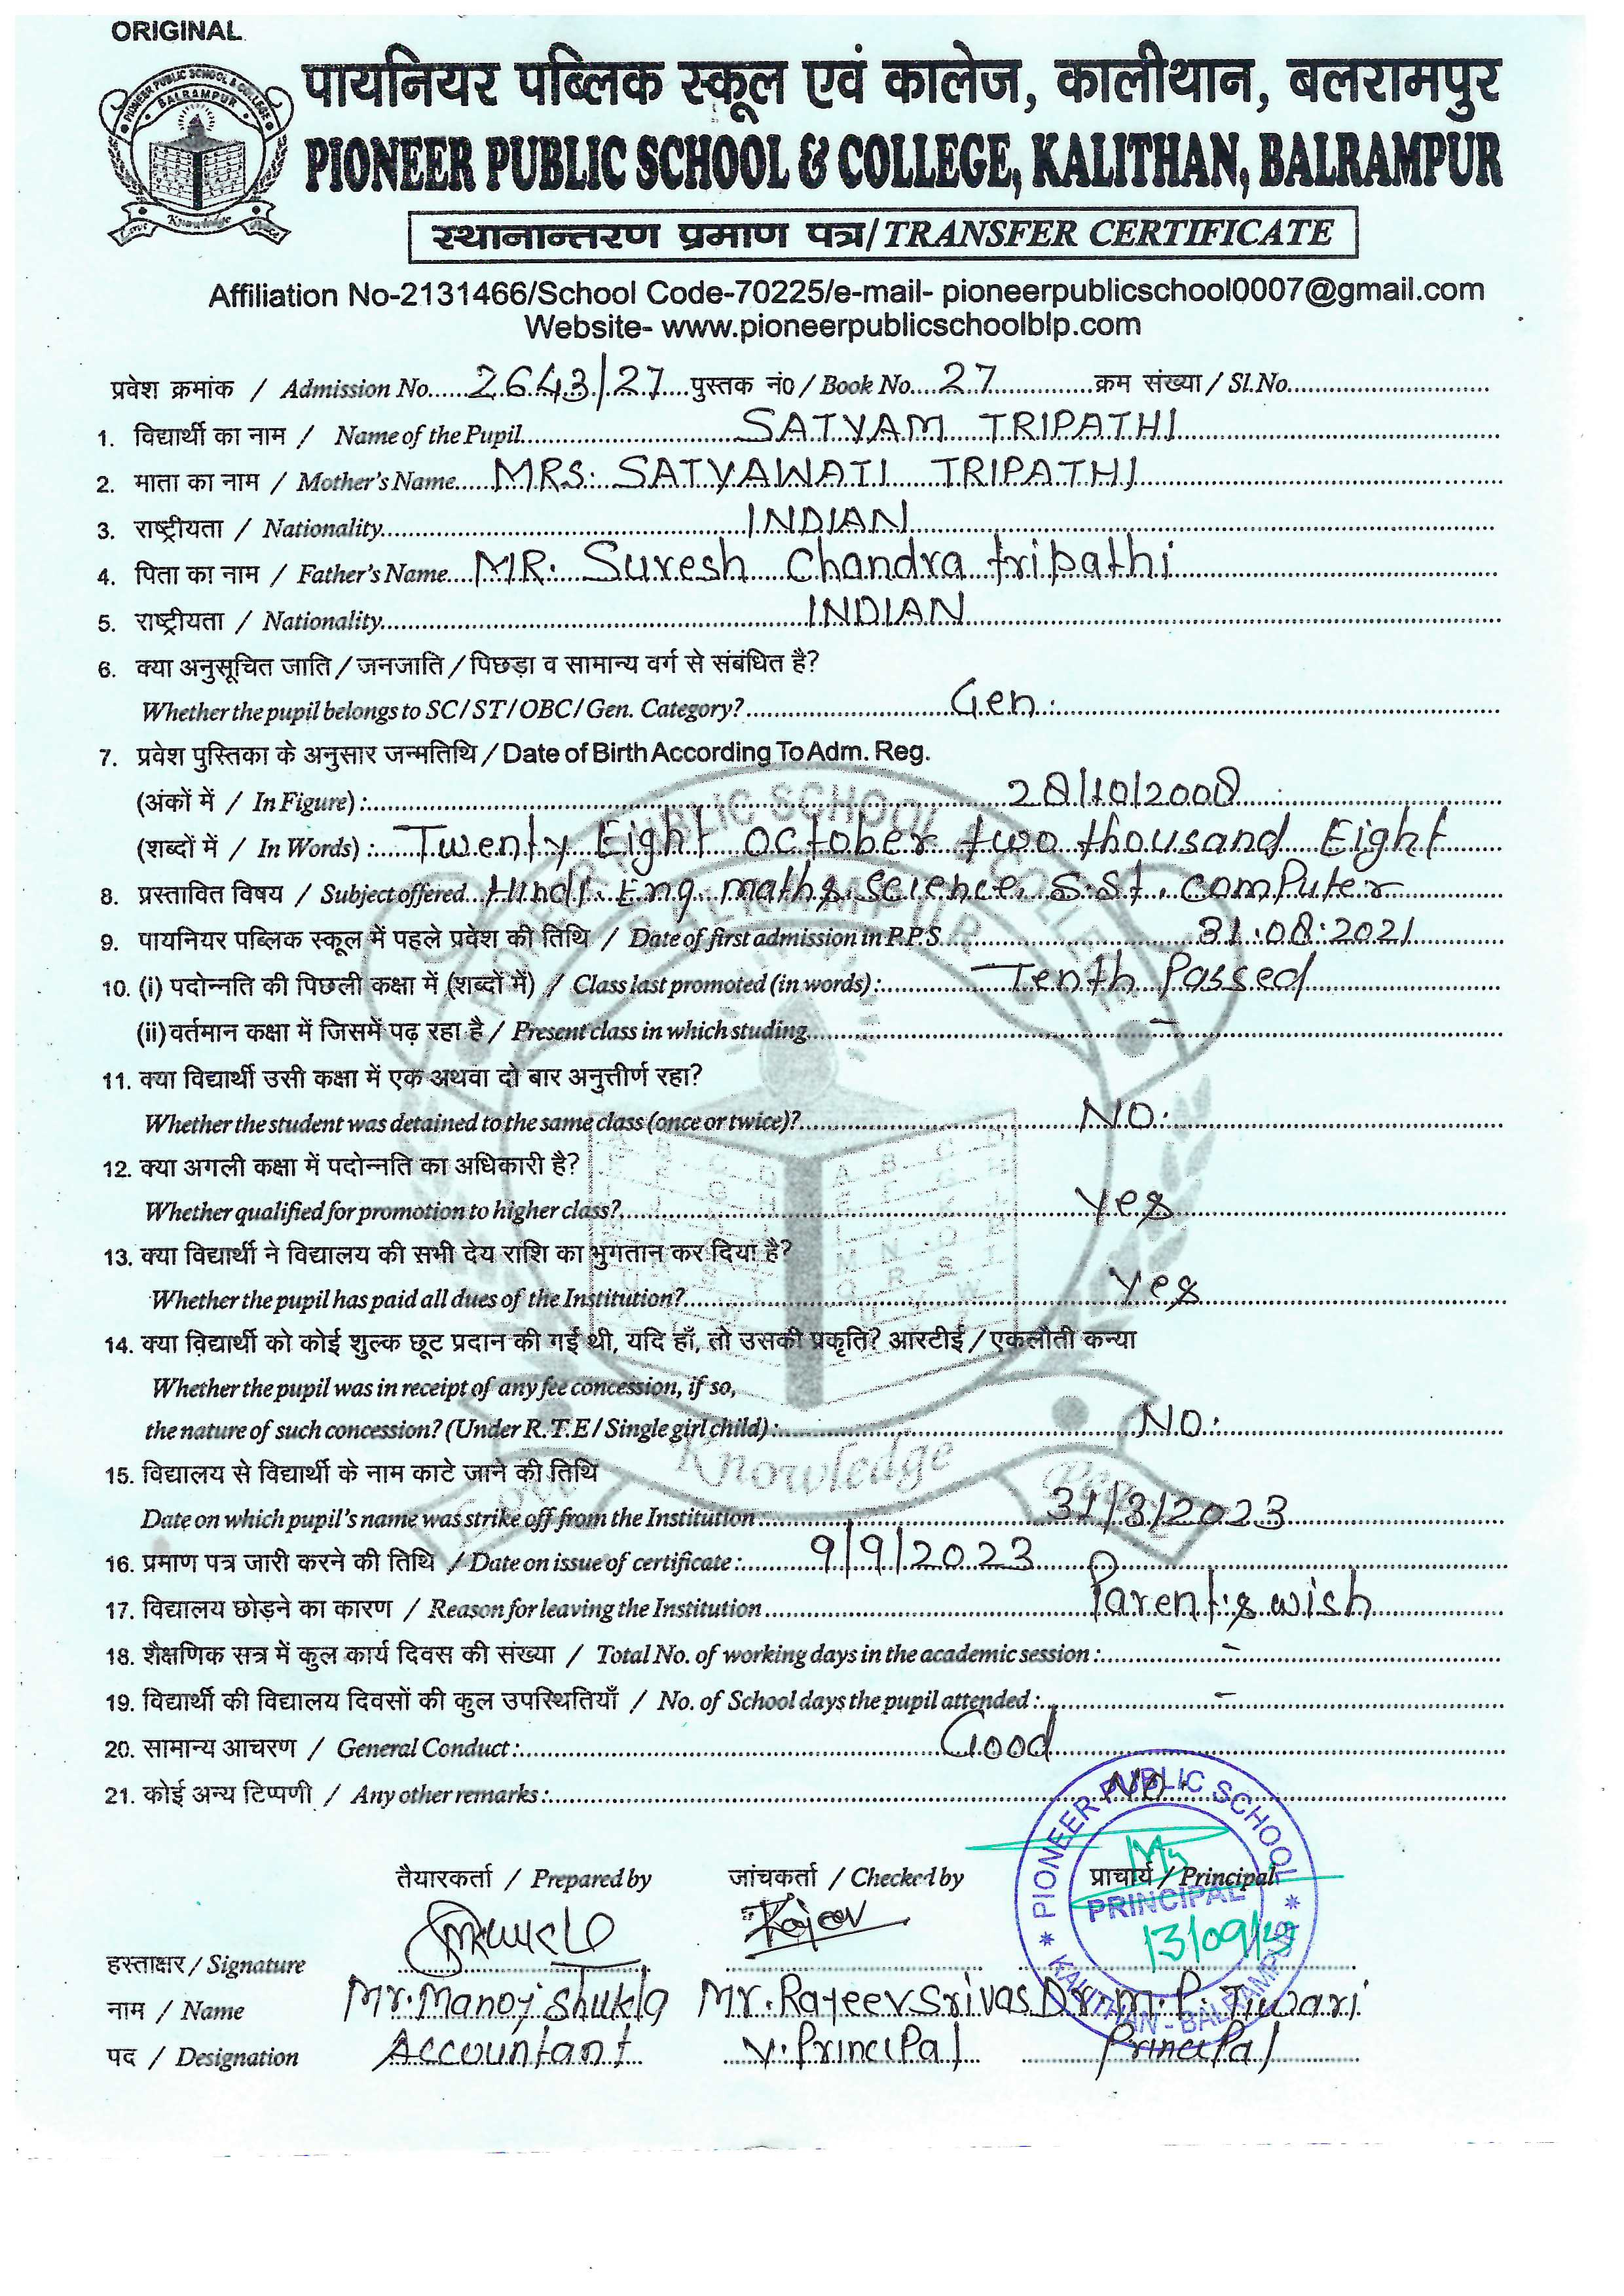 ORIGINAL
PIONEER PUBLIC SCHOOL & COLLEGE
BALRAMPUR
Knowledge
पायनियर पब्लिक स्कूल एवं कालेज, कालीथान, बलरामपुर
PIONEER PUBLIC SCHOOL & COLLEGE, KALITHAN, BALRAMPUR
स्थानान्तरण प्रमाण पत्र/TRANSFER CERTIFICATE
Affiliation No-2131466/School Code-70225/e-mail- pioneerpublicschool0007@gmail.com
Website- www.pioneerpublicschoolblp.com
प्रवेश क्रमांक / Admission No. 2643/27 पुस्तक नं0 / Book No. 27 क्रम संख्या / Sl.No.
1. विद्यार्थी का नाम / Name of the Pupil SATYAM TRIPATHI
2. माता का नाम / Mother's Name MRS. SATYAWATI TRIPATHI
3. राष्ट्रीयता / Nationality INDIAN
4. पिता का नाम / Father's Name MR. Suresh Chandra tripathi
5. राष्ट्रीयता / Nationality INDIAN
6. क्या अनुसूचित जाति / जनजाति / पिछड़ा व सामान्य वर्ग से संबंधित है?
Whether the pupil belongs to SC/ST/OBC/Gen. Category? Gen.
7. प्रवेश पुस्तिका के अनुसार जन्मतिथि / Date of Birth According To Adm. Reg.
(अंकों में / In Figure) : 28/10/2008
(शब्दों में / In Words) : Twenty Eight october two thousand Eight
8. प्रस्तावित विषय / Subject offered Hindi. Eng. maths. Science. S.St. Computer
9. पायनियर पब्लिक स्कूल में पहले प्रवेश की तिथि / Date of first admission in P.P.S. 31.08.2021
10. (i) पदोन्नति की पिछली कक्षा में (शब्दों में) / Class last promoted (in words) : Tenth Passed
(ii) वर्तमान कक्षा में जिसमें पढ़ रहा है / Present class in which studing -
11. क्या विद्यार्थी उसी कक्षा में एक अथवा दो बार अनुत्तीर्ण रहा?
Whether the student was detained to the same class (once or twice)? NO.
12. क्या अगली कक्षा में पदोन्नति का अधिकारी है?
Whether qualified for promotion to higher class? Yes
13. क्या विद्यार्थी ने विद्यालय की सभी देय राशि का भुगतान कर दिया है?
Whether the pupil has paid all dues of the Institution? Yes
14. क्या विद्यार्थी को कोई शुल्क छूट प्रदान की गई थी, यदि हाँ, तो उसकी प्रकृति? आरटीई / एकलौती कन्या
Whether the pupil was in receipt of any fee concession, if so,
the nature of such concession? (Under R.T.E / Single girl child) : NO.
15. विद्यालय से विद्यार्थी के नाम काटे जाने की तिथि
Date on which pupil's name was strike off from the Institution 31/3/2023
16. प्रमाण पत्र जारी करने की तिथि / Date on issue of certificate : 9/9/2023
17. विद्यालय छोड़ने का कारण / Reason for leaving the Institution Parent's wish
18. शैक्षणिक सत्र में कुल कार्य दिवस की संख्या / Total No. of working days in the academic session : -
19. विद्यार्थी की विद्यालय दिवसों की कुल उपस्थितियाँ / No. of School days the pupil attended : -
20. सामान्य आचरण / General Conduct : Good
21. कोई अन्य टिप्पणी / Any other remarks : NO.
तैयारकर्ता / Prepared by जांचकर्ता / Checked by प्राचार्य / Principal
PIONEER PUBLIC SCHOOL
PRINCIPAL
KALITHAN - BALRAMPUR
हस्ताक्षर / Signature Rajeev 13/09/23
नाम / Name Mr. Manoj Shukla Mr. Rajeev Srivas Dr. M. P. Tiwari
पद / Designation Accountant V. Principal Principal